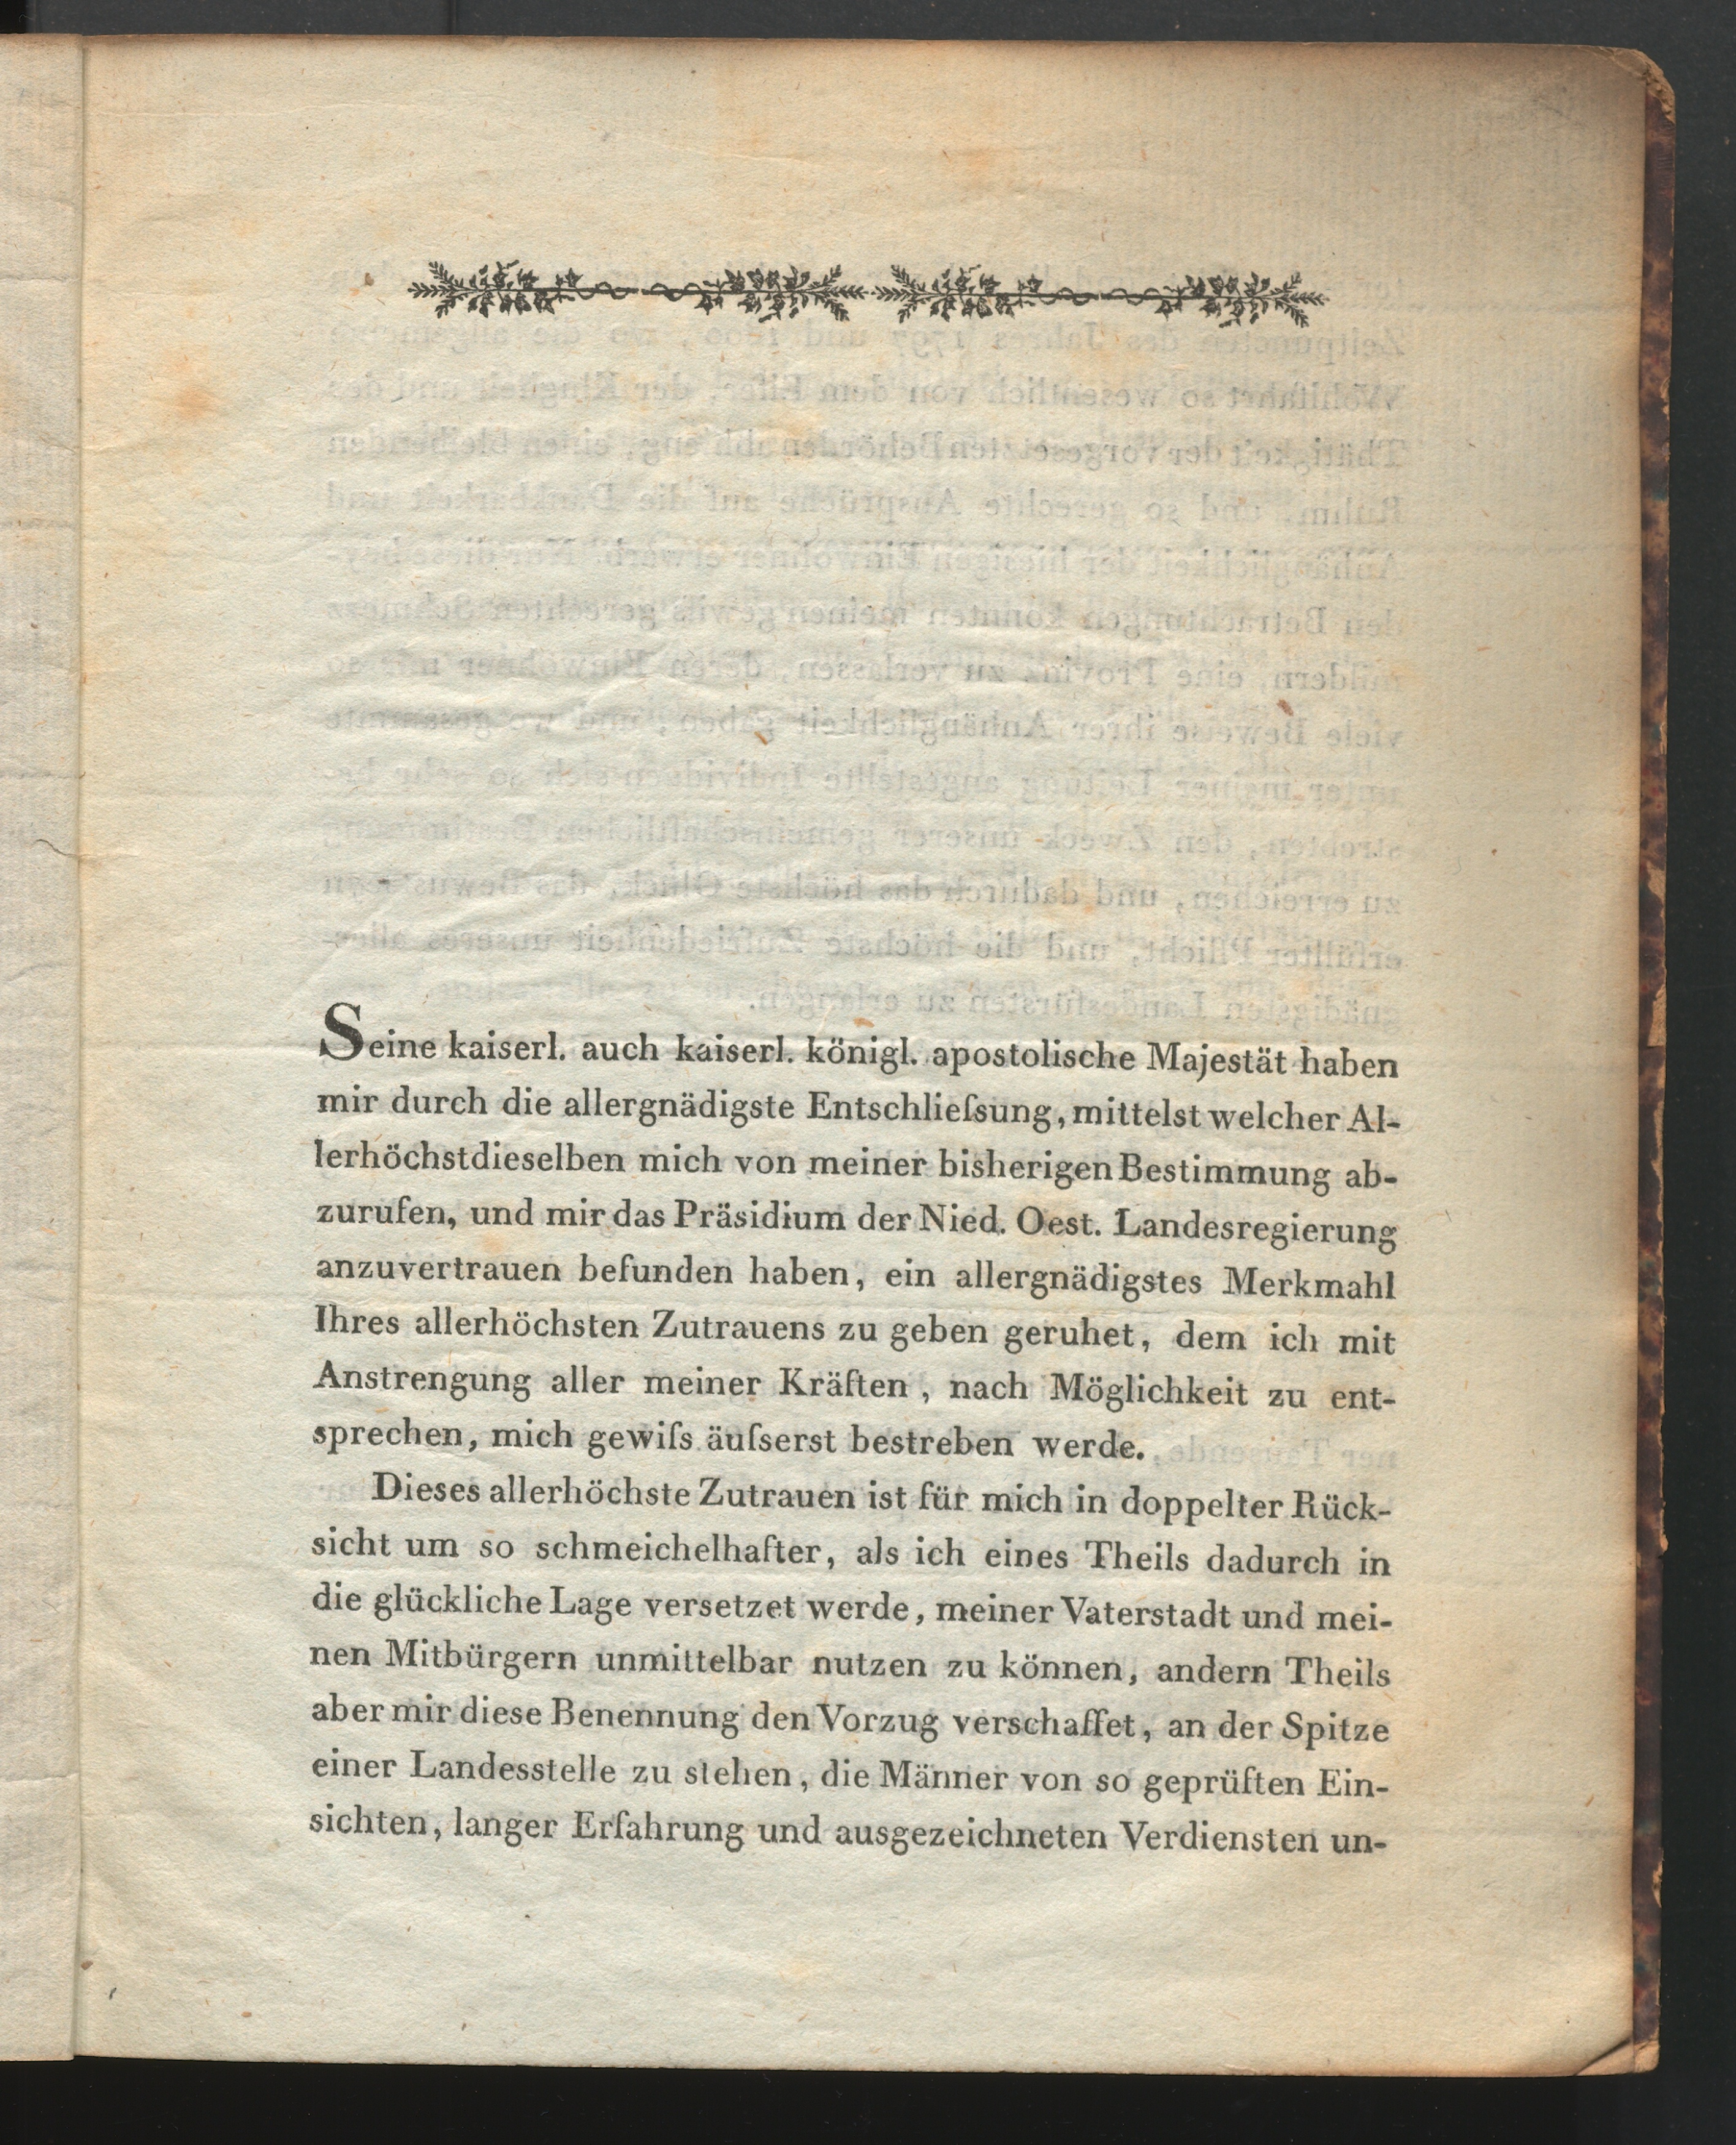 Seine kaiserl. auch kaiserl. königl. apostolische Majestät haben
mir durch die allergnädigste Entschlieſsung, mittelst welcher Al-
lerhöchstdieselben mich von meiner bisherigen Bestimmung ab-
zurufen, und mir das Präsidium der Nied. Oest. Landesregierung
anzuvertrauen befunden haben, ein allergnädigstes Merkmahl
Ihres allerhöchsten Zutrauens zu geben geruhet, dem ich mit
Anstrengung aller meiner Kräften, nach Möglichkeit zu ent-
sprechen, mich gewiſs äuſserst bestreben werde.
Dieses allerhöchste Zutrauen ist für mich in doppelter Rück-
sicht um so schmeichelhafter, als ich eines Theils dadurch in
die glückliche Lage versetzet werde, meiner Vaterstadt und mei-
nen Mitbürgern unmittelbar nutzen zu können, andern Theils
aber mir diese Benennung den Vorzug verschaffet, an der Spitze
einer Landesstelle zu stehen, die Männer von so geprüften Ein-
sichten, langer Erfahrung und ausgezeichneten Verdiensten un-